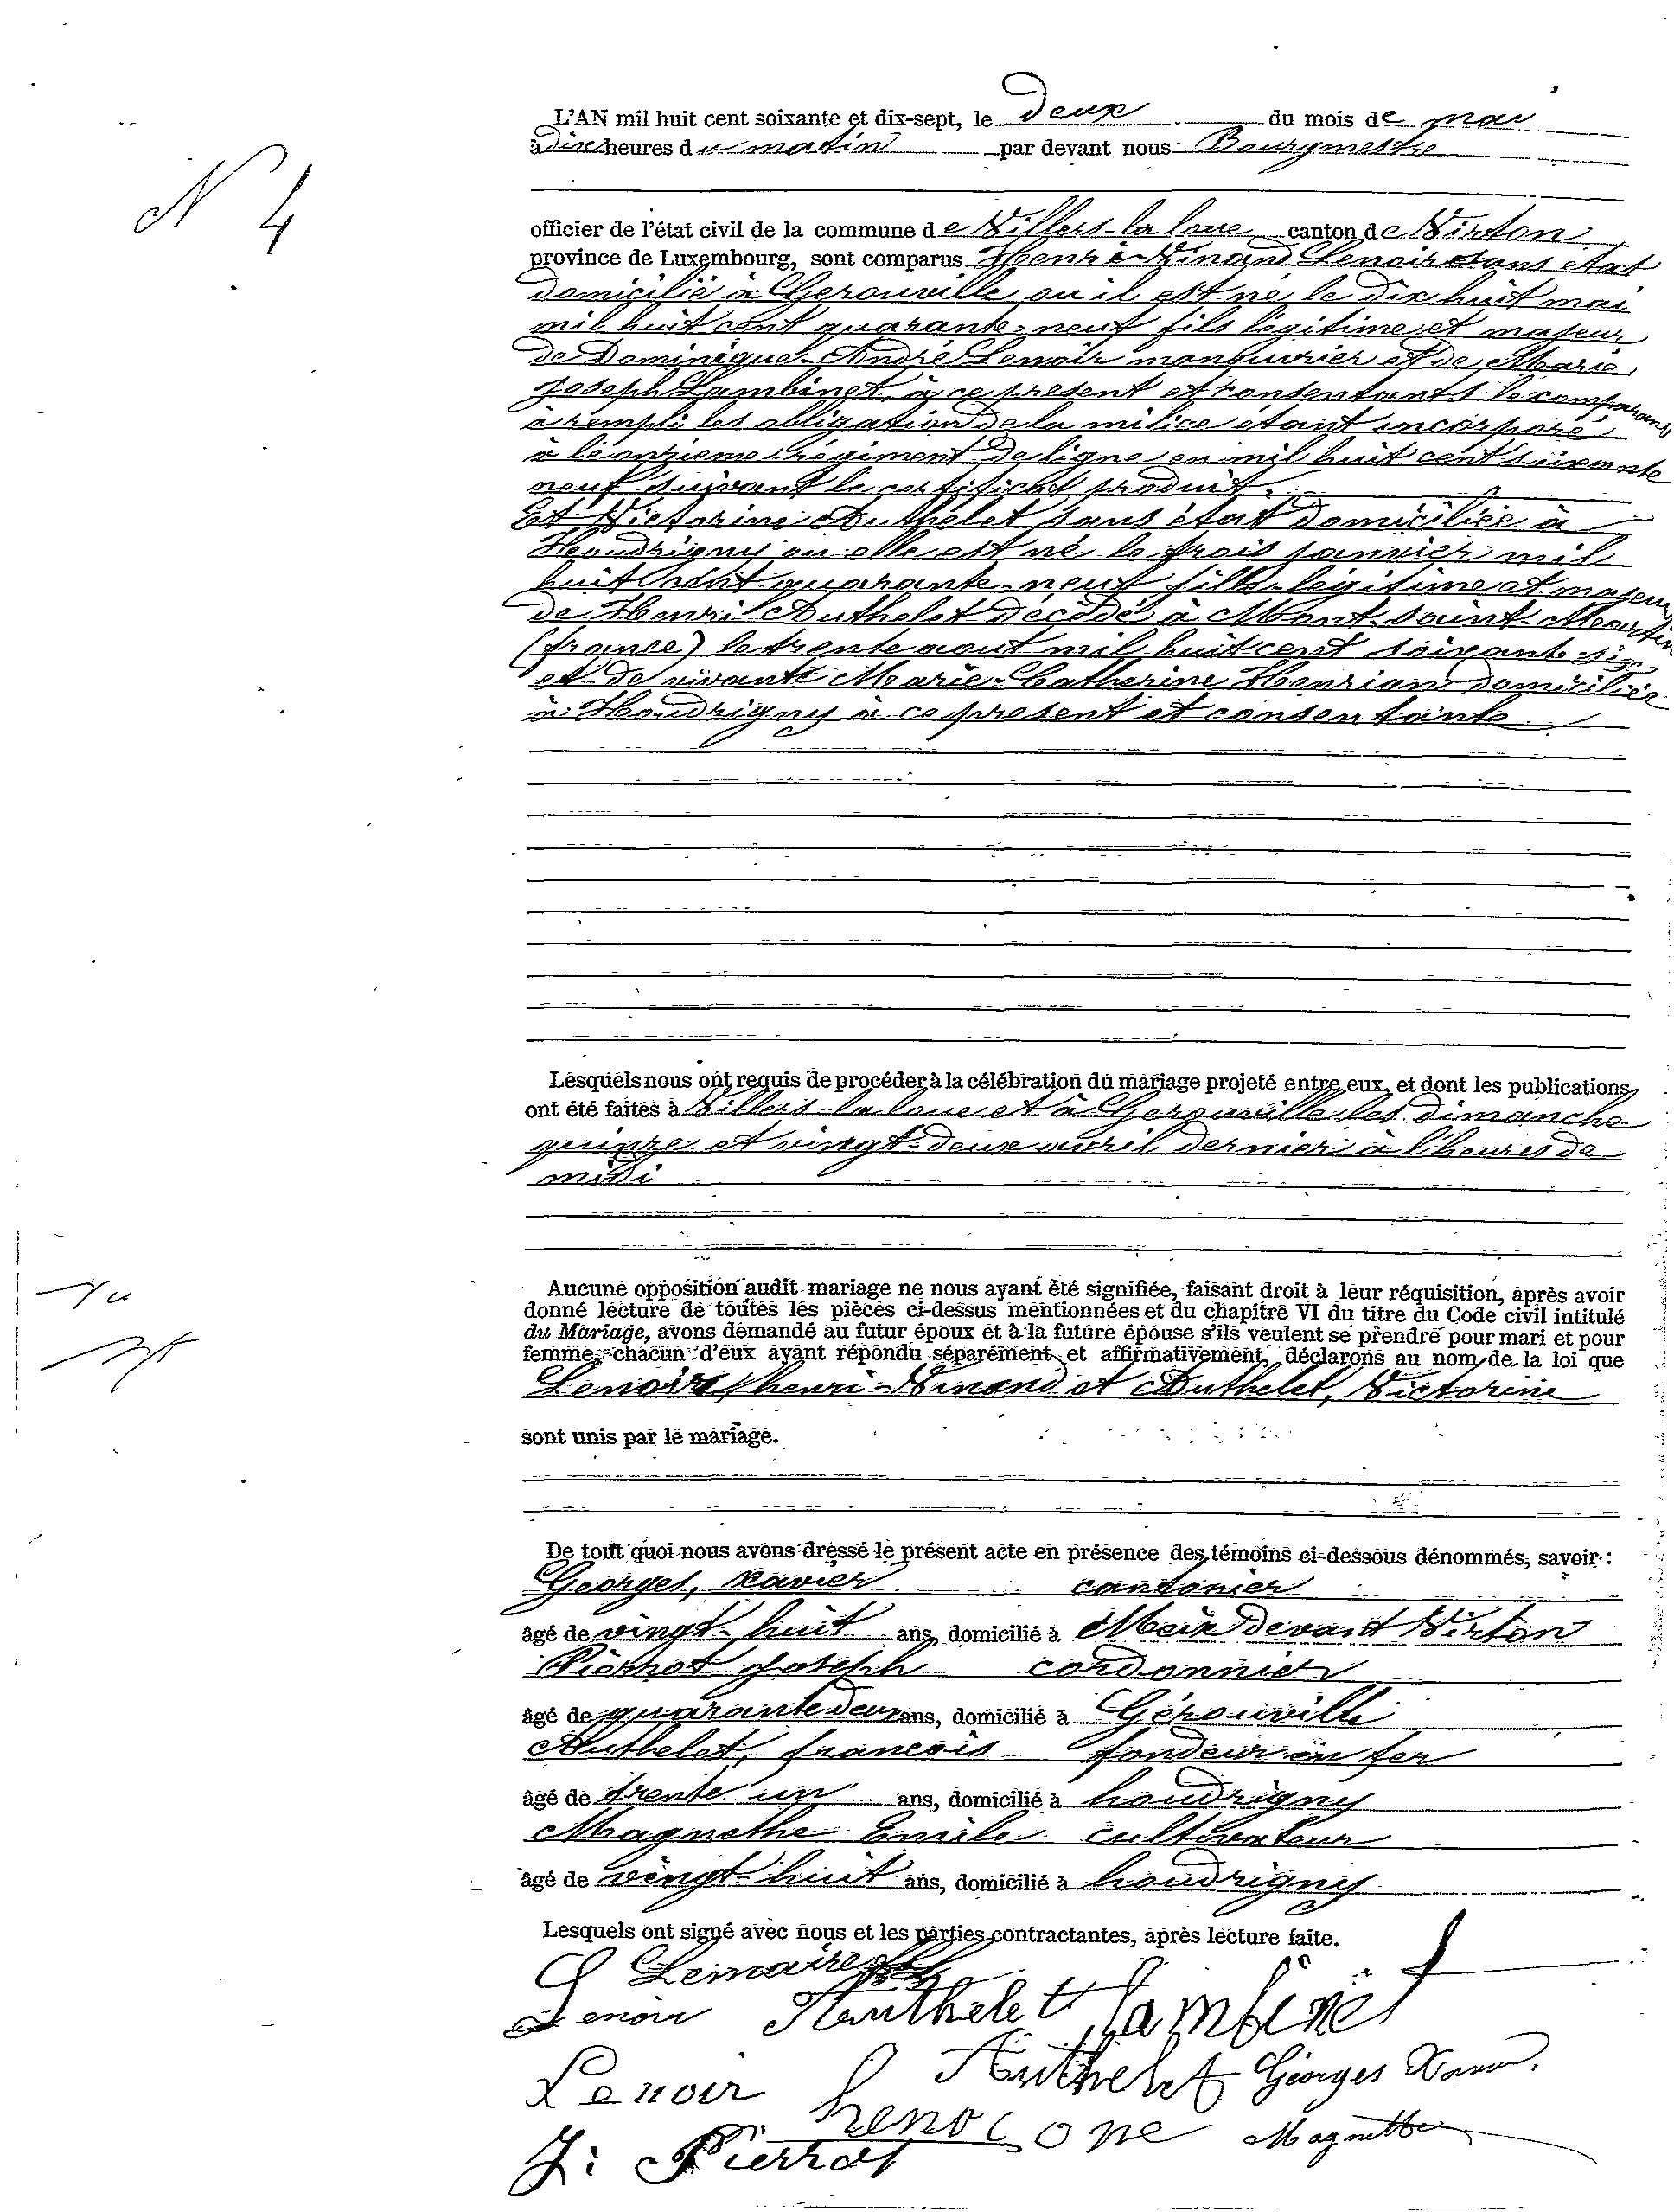 N 4
L'AN mil huit cent soixante et dix-sept, le deux du mois de mai
à dix heures du matin par devant nous Bourgmestre
officier de l'état civil de la commune de Villers-la-loue canton de Virton
province de Luxembourg, sont comparus Henri-Vinand Lenoir sans etat
domicilié à Gerouville ou il est né le dix huit mai
mil huit cent quarante-neuf fils légitime et majeur
de Dominique-André Lenoir manouvrier et de Marie
Joseph Lambinet, à ce present et consentants le comparant
à rempli les obligation de la milice étant incorporé
à le onzieme régiment de ligne en mil huit cent soixante
neuf suivant le certificat produit.
Et Victorine Authelet sans état domiciliée à
Houdrigny ou elle est né le trois janvier mil
huit cent quarante-neuf fille légitime et majeur
de Henri Authelet décédé à Mont-Saint-Martin
(france) le trente aout mil huit cent soixante six
et de vivante Marie-Catherine Henrion domiciliée
à Houdrigny à ce present et consentante
Lesquels nous ont requis de procéder à la célébration du mariage projeté entre eux, et dont les publications
ont été faites à Villers-la-loue et à Gerouville les dimanche
quinze et vingt-deux avril dernier à l'heures de
midi
Aucune opposition audit mariage ne nous ayant été signifiée, faisant droit à leur réquisition, après avoir
donné lecture de toutes les pièces ci-dessus mentionnées et du chapitre VI du titre du Code civil intitulé
du Mariage, avons demandé au futur époux et à la future épouse s'ils veulent se prendre pour mari et pour
femme, chacun d'eux ayant répondu séparément et affirmativement, déclarons au nom de la loi que
Lenoir, henri-Vinand et Authelet, Victorine
sont unis par le mariage.
De tout quoi nous avons dressé le présent acte en présence des témoins ci-dessous dénommés, savoir :
Georges, Xavier cantonier
âgé de vingt-huit ans, domicilié à Meix devant Virton
Pierrot Joseph cordonnier
âgé de quarante deux ans, domicilié à Gérouville
Authelet, francois fondeur en fer
âgé de trente un ans, domicilié à houdrigny
Magnethe Emile cultivateur
âgé de vingt-huit ans, domicilié à houdrigny
Lesquels ont signé avec nous et les parties contractantes, après lecture faite.
Lemaire
Lenoir Authelet lambinet
Lenoir Authelet Georges
Magnette
J: Pierrot